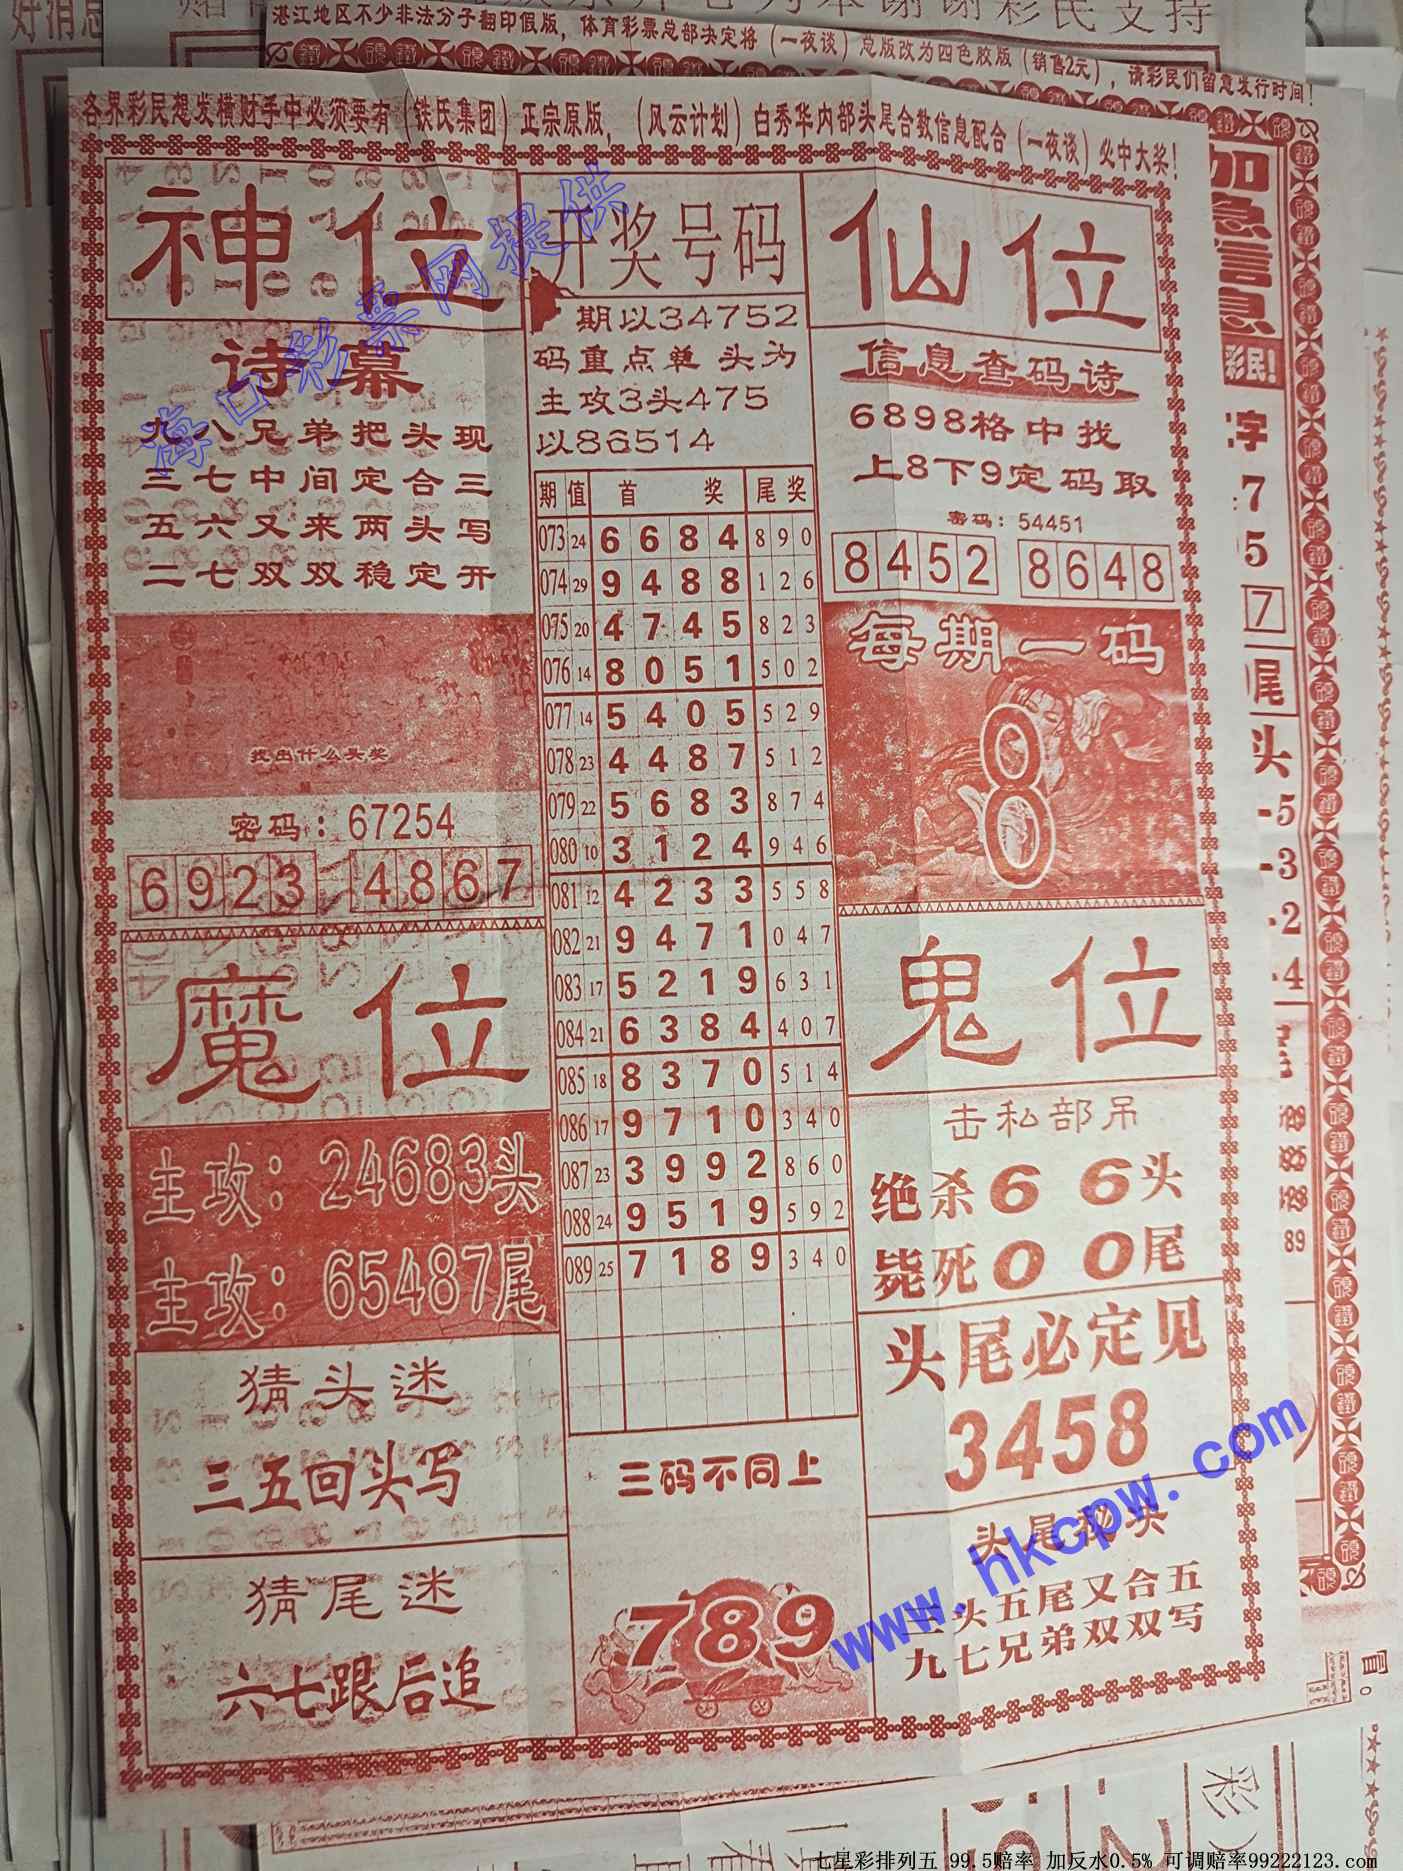 本谢谢彩民支持
好消息
湛江地区不少非法分子翻印假版，体育彩票总部决定将（一夜谈）总版改为四色胶版（销售2元），请彩民们留意发行时间！
各界彩民想发横财手中必须要有（铁氏集团）正宗原版，（风云计划）白秀华内部头尾合数信息配合（一夜谈）必中大奖！
神位
诗幕
九八兄弟把头现
三七中间定合三
五六又来两头写
二七双双稳定开
找出什么头奖
密码：67254
6923 4867
魔位
主攻：24683头
主攻：65487尾
猜头迷
三五回头写
猜尾迷
六七跟后追
开奖号码
期以34752
码重点单头为
主攻3头475
以86514
期 值 首奖 尾奖
073 24 6 6 8 4 8 9 0
074 29 9 4 8 8 1 2 6
075 20 4 7 4 5 8 2 3
076 14 8 0 5 1 5 0 2
077 14 5 4 0 5 5 2 9
078 23 4 4 8 7 5 1 2
079 22 5 6 8 3 8 7 4
080 10 3 1 2 4 9 4 6
081 12 4 2 3 3 5 5 8
082 21 9 4 7 1 0 4 7
083 17 5 2 1 9 6 3 1
084 21 6 3 8 4 4 0 7
085 18 8 3 7 0 5 1 4
086 17 9 7 1 0 3 4 0
087 23 3 9 9 2 8 6 0
088 24 9 5 1 9 5 9 2
089 25 7 1 8 9 3 4 0
三码不同上
789
仙位
信息查码诗
6898格中找
上8下9定码取
密码：54451
8452 8648
每期一码
8
鬼位
击私部吊
绝杀66头
毙死00尾
头尾必定见
3458
头尾秘决
头五尾又合五
九七兄弟双双写
加急信息
彩民！
字
7
5
7
尾
头
-5
-3
-2
-4
89
海口彩票网提供
www.hkcpw.com
七星彩排列五 99.5赔率 加反水0.5% 可调赔率99222123.com